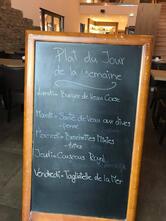 Plat du Jour
de la semaine
Lundi = Burger de Veau Corse
Mardi = Sauté de Veau aux olives
+ penne
Mercredi = Brochettes Mixtes
+ frites
Jeudi = Couscous Royal
Vendredi = Tagliatelle de la Mer